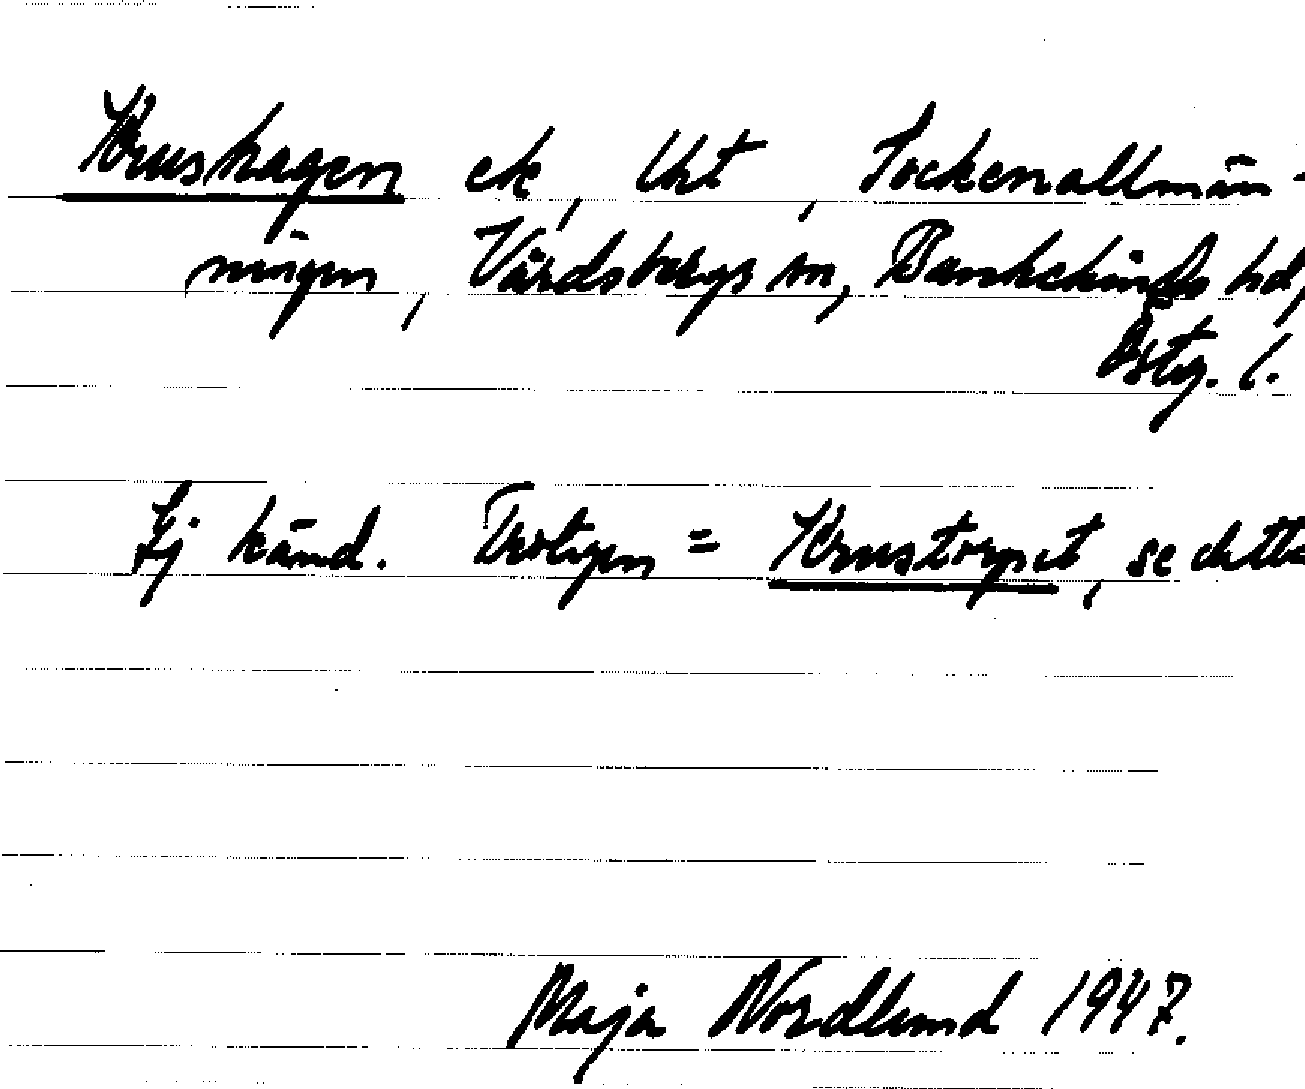 Krushagen ek, Urt, Sockenallmän-
ningen, Vårdsbergs sn, Bankekinds hd,
Östg. l.
Ej känd. Troligen = Krustorpet, se detta
Maja Nordlund 1947.